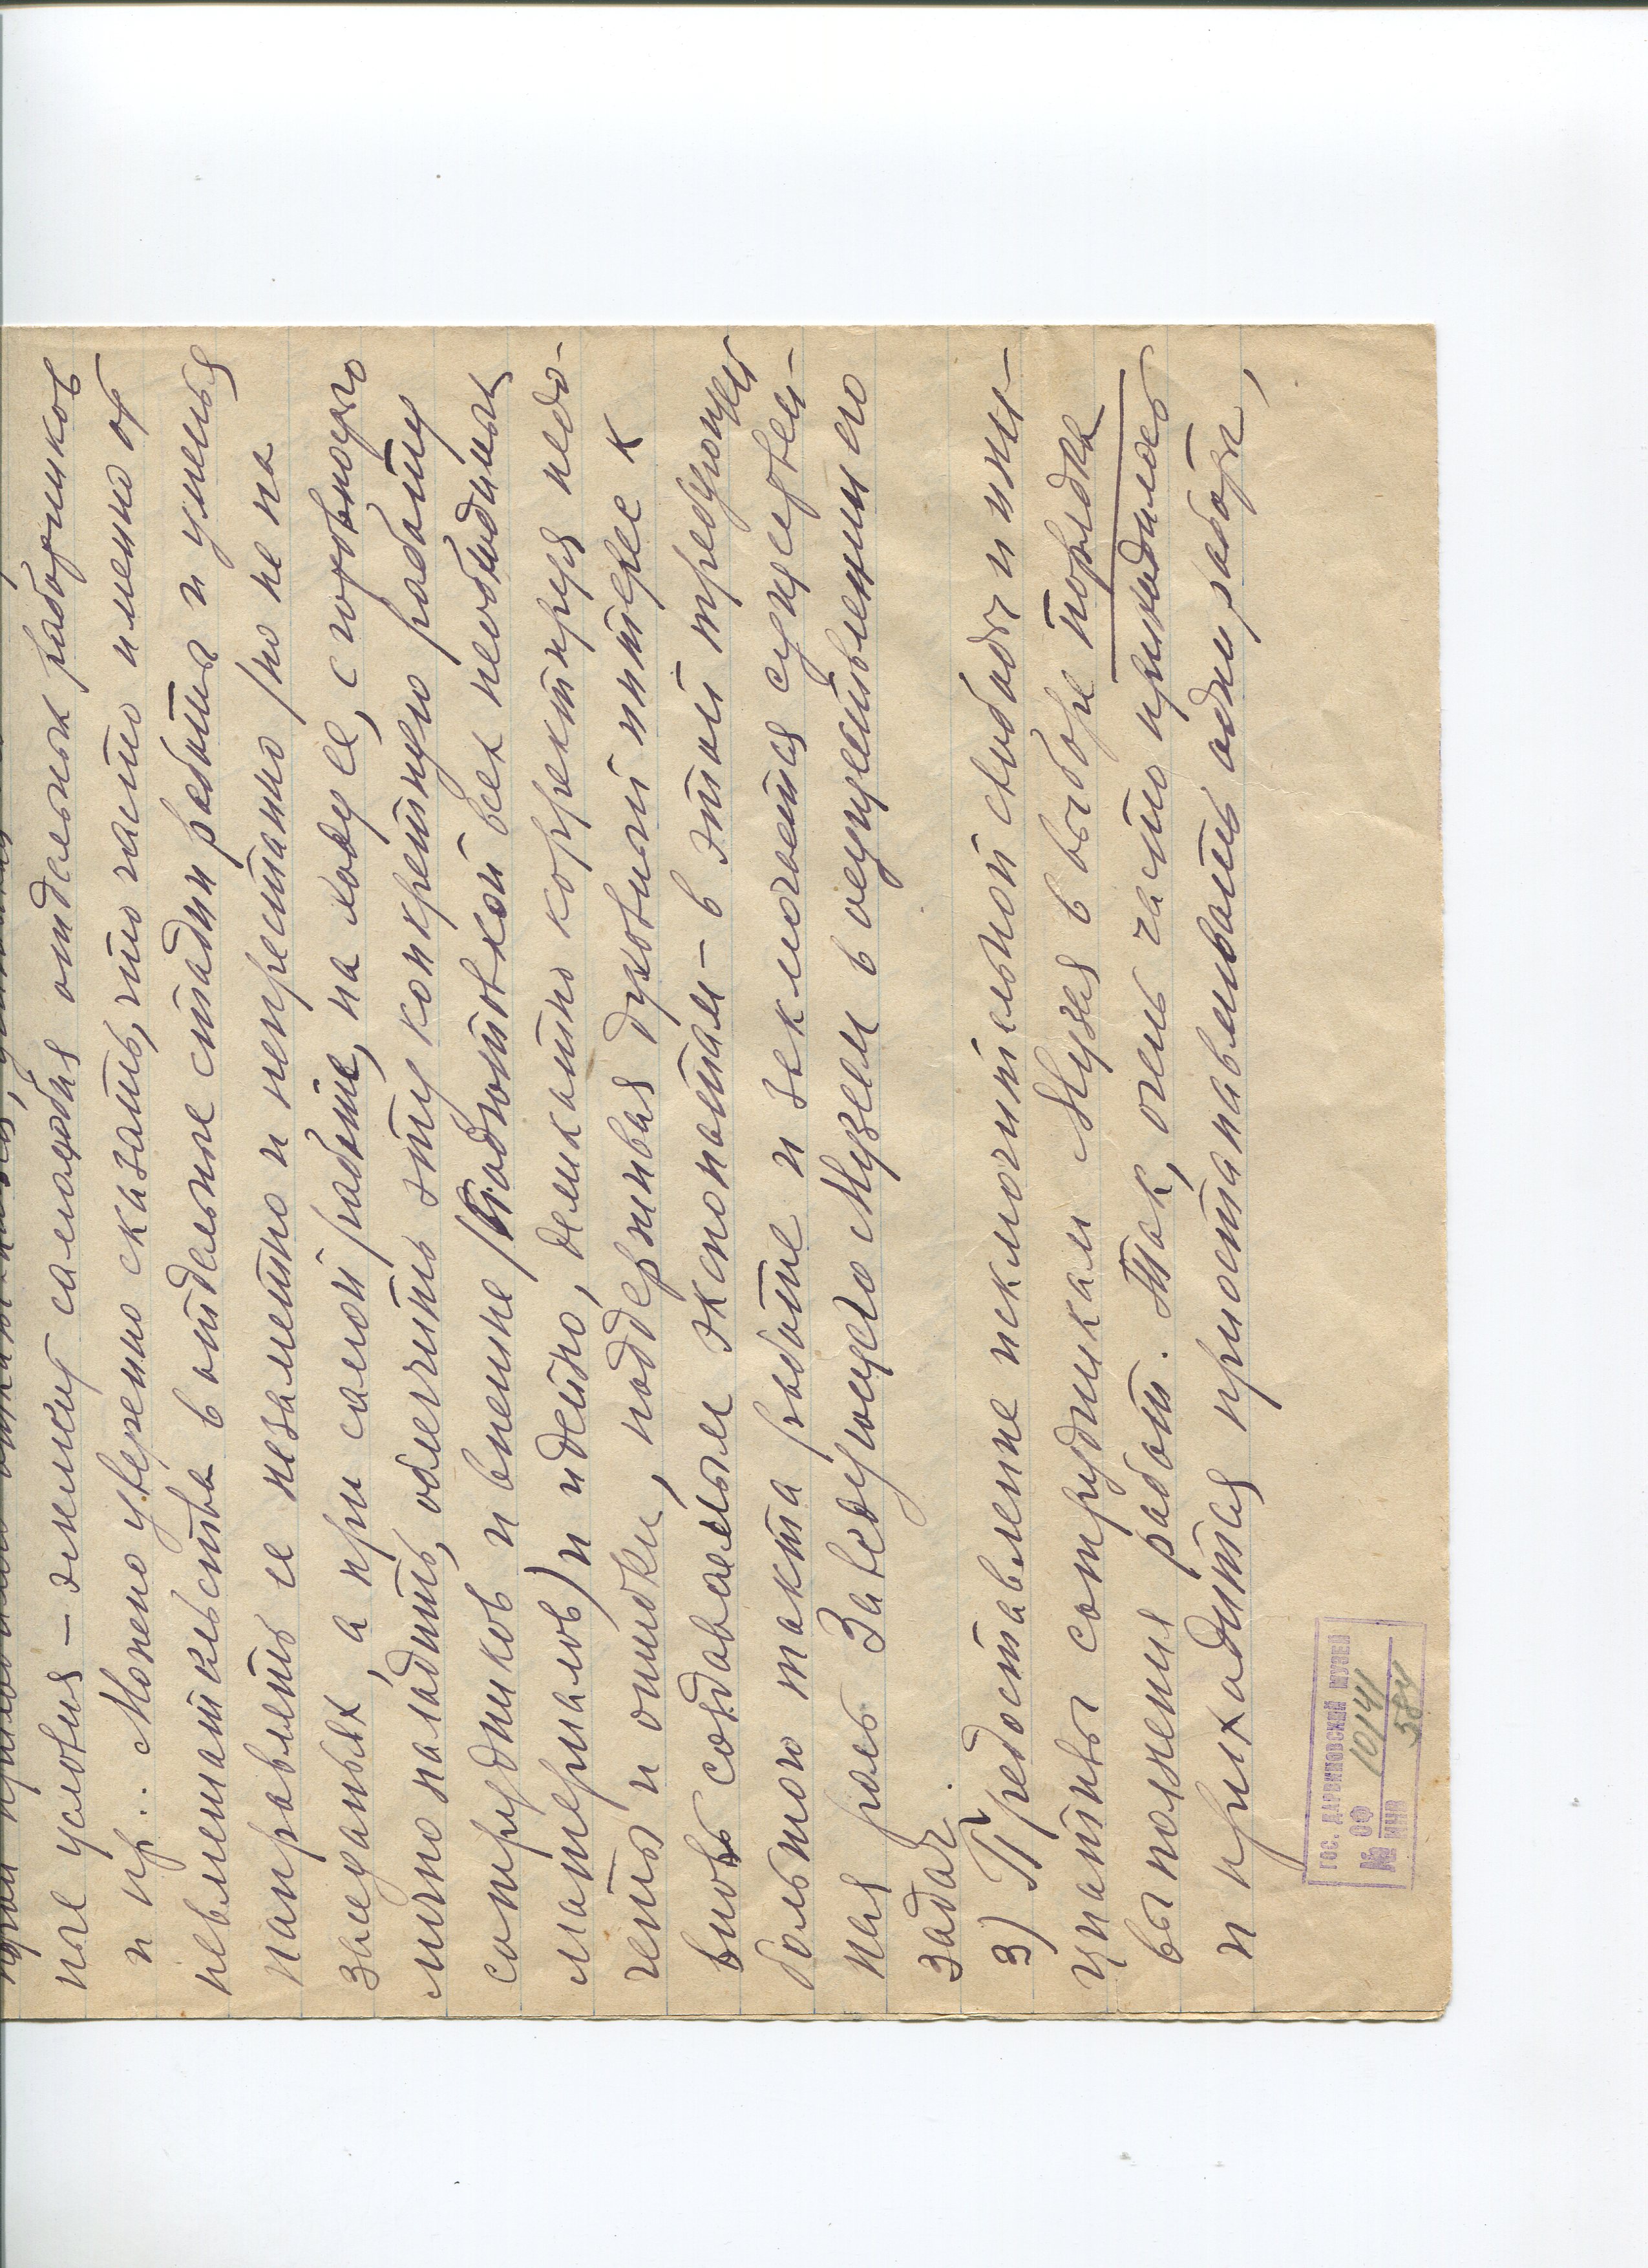 ные условия – эти их самолюбия отдельных работников
и пр.. Можно уверенно сказать, что часто именно от
невмешательства в отдельные стадии работы и уменья
направлять ее незаметно и непрестанно /но не на
заседаньях, а при самой работе, на ходу ее, с готовностью
лично наладить, облегчить эту конкретную работу
сотрудников и внешне /подготовкой всех необходимых
материалов) и идейно, деликатно корректируя недо-
четы и ошибки, поддерживая духовный интерес к
вновь создаваемым экспонатам – в этой требующей
большого такта работе и заключается существен-
ная роль Заведующего Музеем в осуществлении его
задач.
3) Предоставление исключительной свободы и ини-
циативы сотрудникам Музея в выборе порядка
выполнения работ. Так, очень часто приходилось
и приходится приостанавливать одни работы,
ГОС. ДАРВИНОВСКИЙ МУЗЕЙ
№ ОФ 10141
ИНВ 584